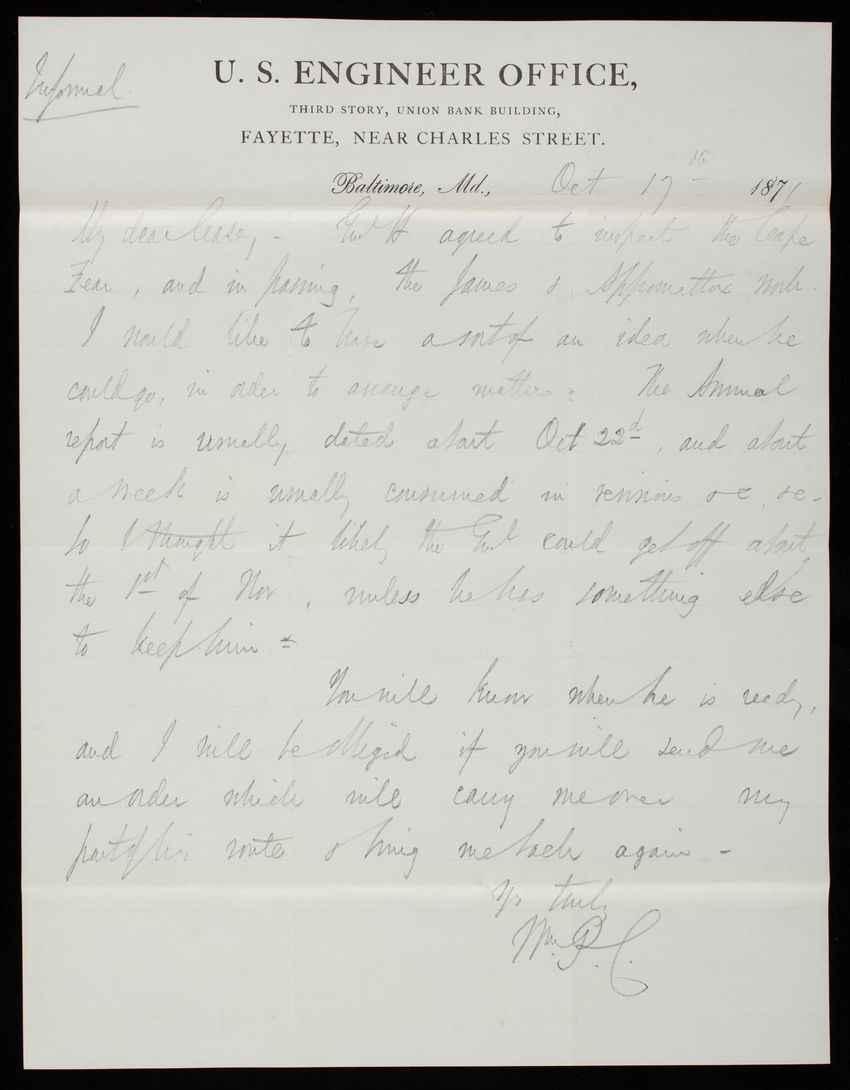 Informal.
U. S. ENGINEER OFFICE,
THIRD STORY, UNION BANK BUILDING,
FAYETTE, NEAR CHARLES STREET.
Baltimore, Md., Oct 17th 1871
My dear Casey, - Genl H agreed to inspect the Cape
Fear, and in passing, the James & Appomattox work.
I would like to have a sort of an idea when he
could go, in order to arrange matters. The Annual
report is usually dated about Oct 22d, and about
a week is usually consumed in revisions &c, &c-
So I thought it likely the Genl could get off about
the 1st of Nov, unless he has something else
to keep him =
You will know when he is ready,
and I will be obliged if you will send me
an order which will carry me over my
part of his route & bring me back again -
Yr truly
Wm. P. C.